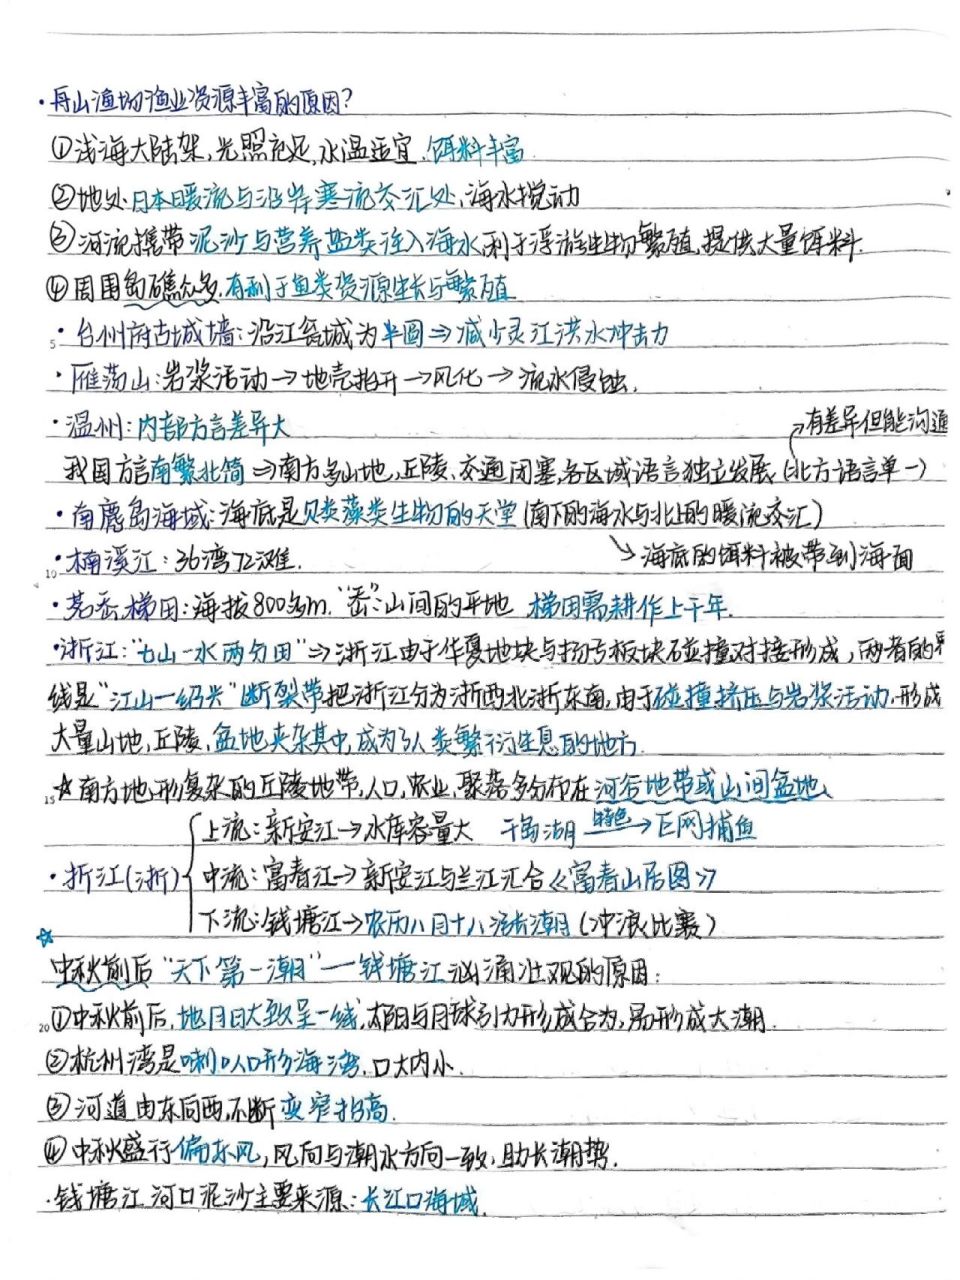 ·舟山渔场渔业资源丰富的原因?
①浅海大陆架,光照充足,水温适宜,饵料丰富
②地处日本暖流与沿岸寒流交汇处,海水搅动
③河流携带泥沙与营养盐类注入海水,利于浮游生物繁殖,提供大量饵料.
④周围岛礁众多,有利于鱼类资源生长与繁殖
5
·台州府古城墙:沿江瓮城为半圆⇒减少灵江洪水冲击力
·雁荡山:岩浆活动→地壳抬升→风化→流水侵蚀.
·温州:内部方言差异大
→有差异但能沟通
我国方言南繁北简⇒南方多山地,丘陵、交通闭塞,各区域语言独立发展(北方语言单一)
·南麂岛海域:海底是贝类藻类生物的天堂(南下的海水与北上的暖流交汇)
↘海底的饵料被带到海面
10
·楠溪江:36湾72滩.
·茗岙梯田:海拔800多m."岙":山间的平地 梯田需耕作上千年.
·浙江:"七山一水两分田"⇒浙江由于华夏地块与扬子板块碰撞对接形成,两者的界
线是"江山—绍兴"断裂带把浙江分为浙西北浙东南,由于碰撞挤压与岩浆活动,形成
大量山地,丘陵,盆地夹杂其中,成为了人类繁衍生息的地方.
15
☆南方地形复杂的丘陵地带,人口,农业,聚落多分布在河谷地带或山间盆地、
上流:新安江→水库容量大 千岛湖 特色→巨网捕鱼
·折江(浙) 中流:富春江→新安江与兰江汇合《富春山居图》
下流:钱塘江→农历八月十八涨大潮(冲浪比赛)
☆
中秋前后"天下第一潮"—钱塘江汹涌壮观的原因:
20
①中秋前后,地月日大致呈一线,太阳与月球引力形成合力,易形成大潮.
②杭州湾是喇叭口形海湾,口大内小.
③河道由东向西,不断变窄抬高.
④中秋盛行偏东风,风向与潮水方向一致,助长潮势.
·钱塘江河口泥沙主要来源:长江口海域.